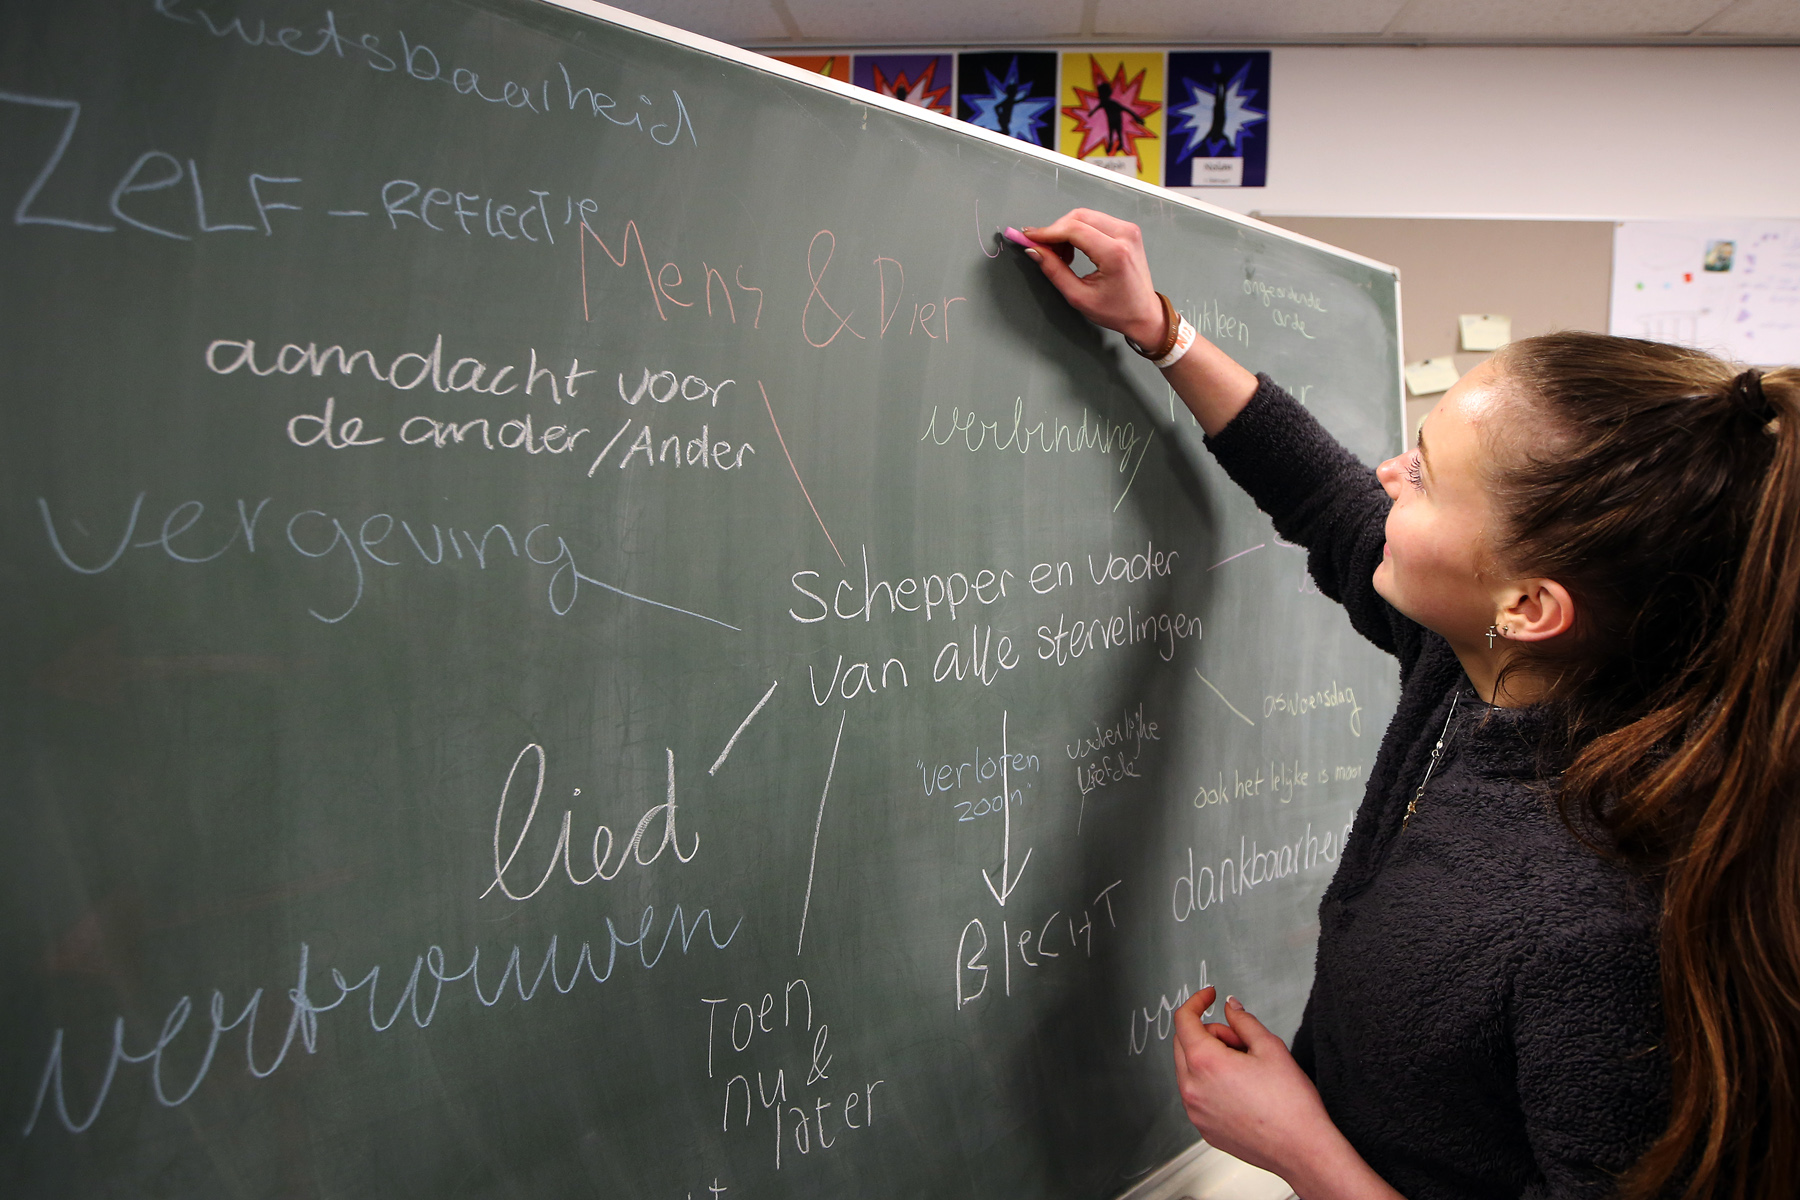 kwetsbaarheid
ZELF-REFLECTIE
Mens & Dier
ongeordende
aarde
aandacht voor
de ander/Ander
verbinding
vergeving
Schepper en vader
van alle stervelingen
aswoensdag
"verloren
zoon"
vaderlijke
liefde
ook het lelijke is mooi
lied
dankbaarheid
vertrouwen
BIECHT
Toen
nu &
later